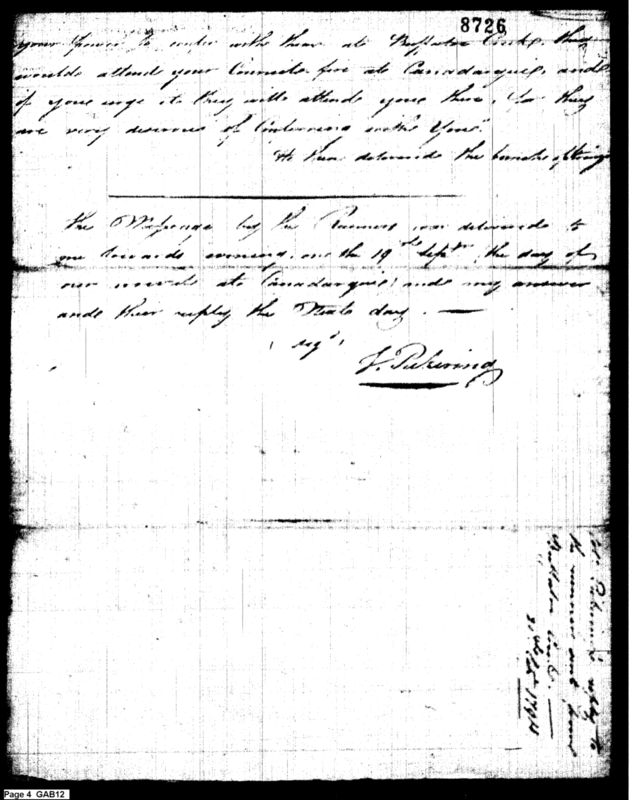 8726
your power to confer with them at Buffaloe Creek, they
would attend your Council fire at Canadarquie, and
if you urge it they will attend you there, for they
are very desirous of conferring with you"
He then delivered the bunch of strings
The Message by the Runners was delivered to
me towards evening, on the 19th Septr the day of
our arrival at Canadarquie, and my answer
and their reply the next day. —
(sigd)
T. Pickering
Col. Pickering's reply to
the runners sent from
Buffaloe Creek. —
Septr 1794
Page 4 GAB12